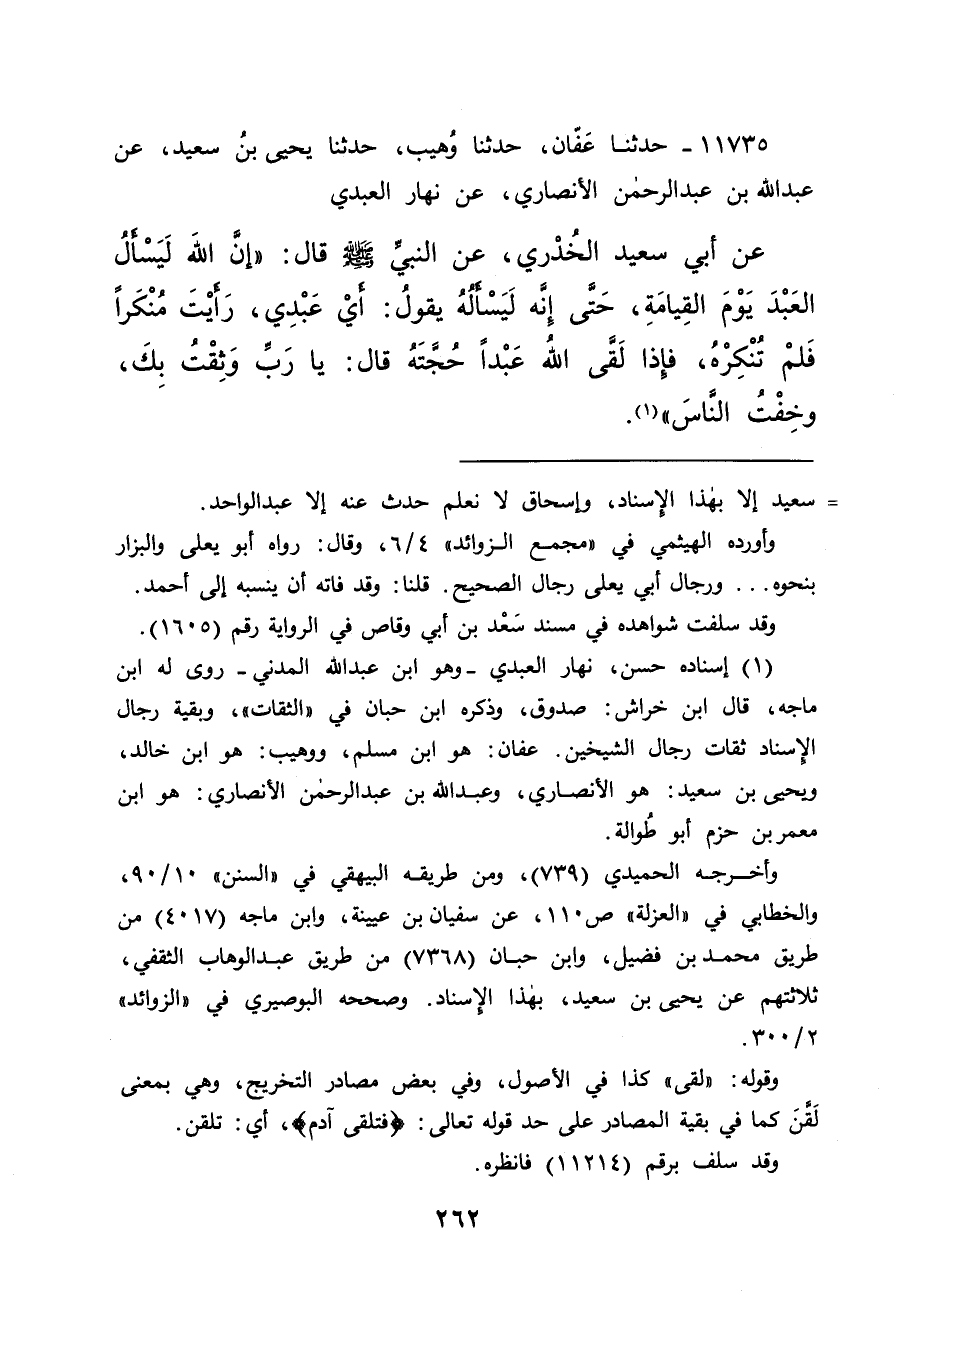 ١١٧٣٥ ـ حدثنـا عَفّان، حدثنا وُهيب، حدثنا يحيى بنُ سعيد، عن
عبدالله بن عبدالرحمٰن الأنصاري، عن نهار العبدي
عن أبي سعيد الخُدْري، عن النبيِّ ﷺ قال: «إنَّ اللهَ لَيَسْأَلُ
العَبْدَ يَوْمَ القِيامَةِ، حَتَّى إِنَّه لَيَسْأَلُهُ يقولُ: أَيْ عَبْدِي، رَأَيْتَ مُنْكَراً
فَلمْ تُنْكِرْهُ، فإِذا لَقَّى اللهُ عَبْداً حُجَّتَهُ قال: يا رَبِّ وَثِقْتُ بِكَ،
وخِفْتُ النَّاسَ»(١).
= سعيد إلا بهٰذا الإِسناد، وإسحاق لا نعلم حدث عنه إلا عبدالواحد.
وأورده الهيثمي في «مجمـع الـزوائد» ٦/٤، وقال: رواه أبو يعلى والبزار
بنحوه... ورجال أبي يعلى رجال الصحيح. قلنا: وقد فاته أن ينسبه إلى أحمد.
وقد سلفت شواهده في مسند سَعْد بن أبي وقاص في الرواية رقم (١٦٠٥).
(١) إسناده حسن، نهار العبدي ـ وهو ابن عبدالله المدني ـ روى له ابن
ماجه، قال ابن خراش: صدوق، وذكره ابن حبان في «الثقات»، وبقية رجال
الإِسناد ثقات رجال الشيخين. عفان: هو ابن مسلم، ووهيب: هو ابن خالد،
ويحيى بن سعيد: هو الأنصـاري، وعبـدالله بن عبدالرحمٰن الأنصاري: هو ابن
معمر بن حزم أبو طُوالة.
وأخـرجـه الحميدي (٧٣٩)، ومن طريقـه البيهقي في «السنن» ٩٠/١٠،
والخطابي في «العزلة» ص١١٠، عن سفيان بن عيينة، وابن ماجه (٤٠١٧) من
طريق محمـد بن فضيل، وابن حبـان (٧٣٦٨) من طريق عبـدالوهاب الثقفي،
ثلاثتهم عن يحيى بن سعيد، بهٰذا الإِسناد. وصححه البوصيري في «الزوائد»
٣٠٠/٢.
وقوله: «لقى» كذا في الأصول، وفي بعض مصادر التخريج، وهي بمعنى
لَقَّنَ كما في بقية المصادر على حد قوله تعالى: ﴿فتلقى آدم﴾، أي: تلقن.
وقد سلف برقم (١١٢١٤) فانظره.
٢٦٢